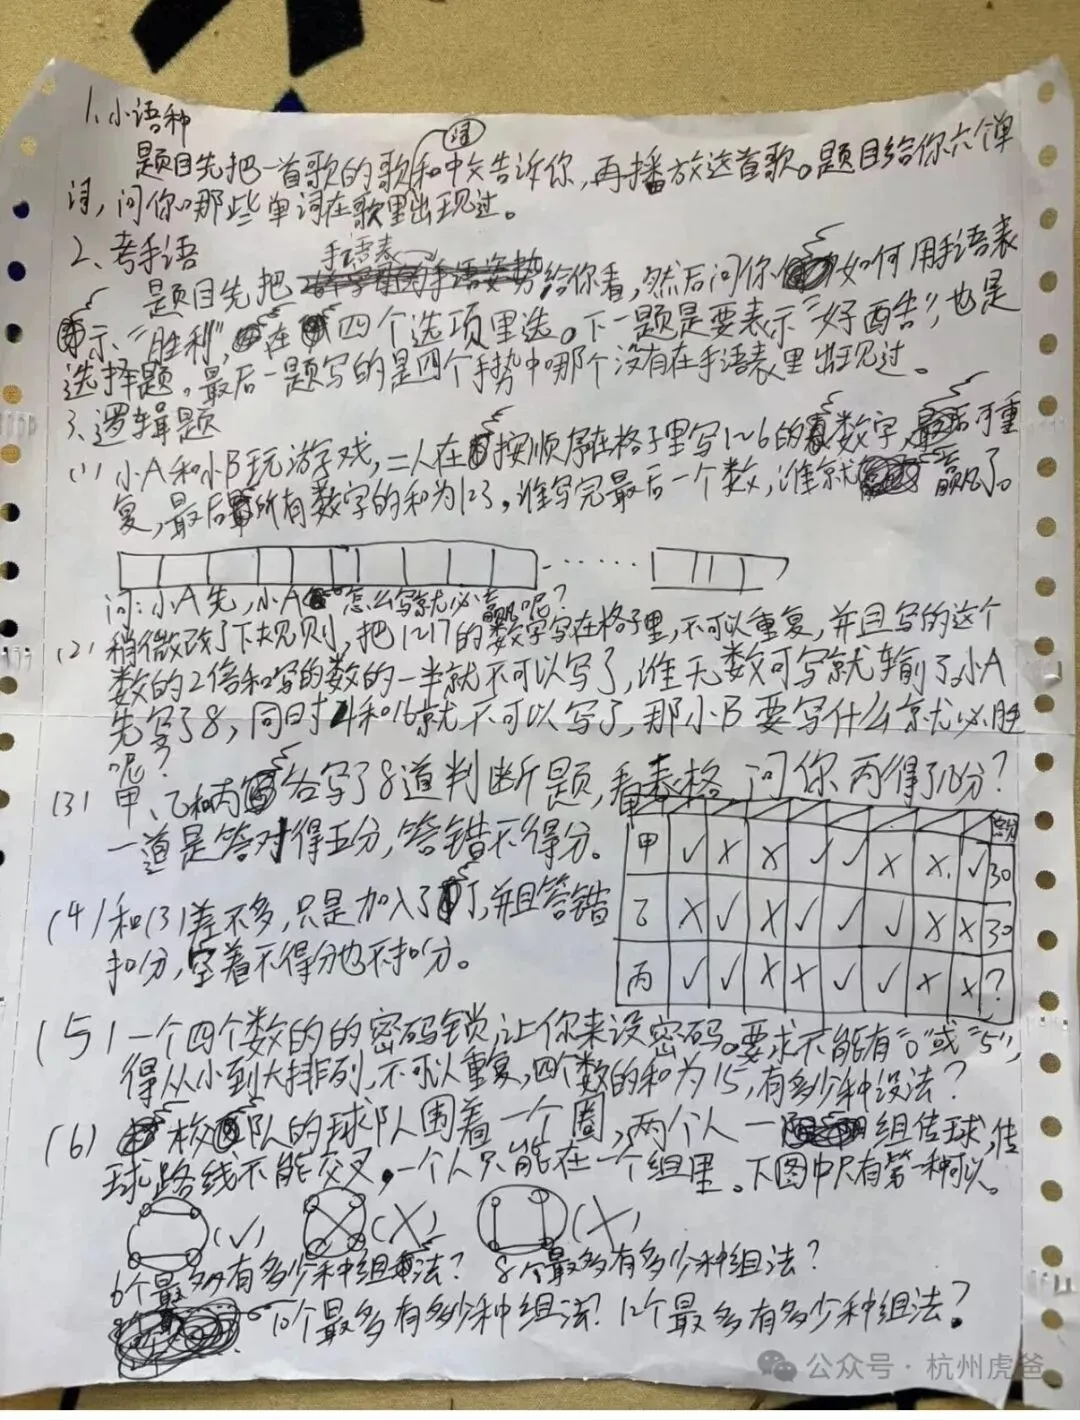 1、小语种
词
题目先把一首歌的歌和中文告诉你,再播放这首歌。题目给你六个单
词,问你哪些单词在歌里出现过。
2、考手语
手语表
题目先把给你看,然后问你如何用手语表
示“胜利”,在四个选项里选。下一题是要表示“好酉告”,也是
选择题。最后一题写的是四个手势中哪个没有在手语表里出现过。
3、逻辑题
(1) 小A和小B玩游戏,二人在按顺序在格子里写1~6的数字,可重
复,最后所有数字的和为123。谁写完最后一个数,谁就赢了。
……
问:小A先,小A怎么写就必赢呢?
(2) 稍微改了下规则,把1~17的数字写在格子里,不可以重复,并且写的这个
数的2倍和写的数的一半就不可以写了,谁无数可写就输了。小A
先写了8,同时4和16就不可以写了,那小B要写什么就必胜
呢?
(3) 甲、乙和丙各写了8道判断题,看表格 问你丙得了几分?
一道是答对得五分,答错不得分。
总分
甲 √ × × √ √ × × √ 30
乙 × √ × √ √ √ × × 30
丙 √ √ × × √ √ × × ?
(4) 和(3)差不多,只是加入了丁,并且答错
扣分,空着不得分也不扣分。
(5) 一个四个数的的密码锁,让你来设密码。要求不能有“0”或“5”,
得从小到大排列,不可以重复,四个数的和为15,有多少种设法?
(6) 校队的球队围着一个圈,两个人一组传球,传
球路线不能交叉,一个人只能在一个组里。下图中只有第一种可以。
(√) (×) (×)
6个最多有多少种组法? 8个最多有多少种组法?
10个最多有多少种组法? 12个最多有多少种组法?
公众号·杭州虎爸